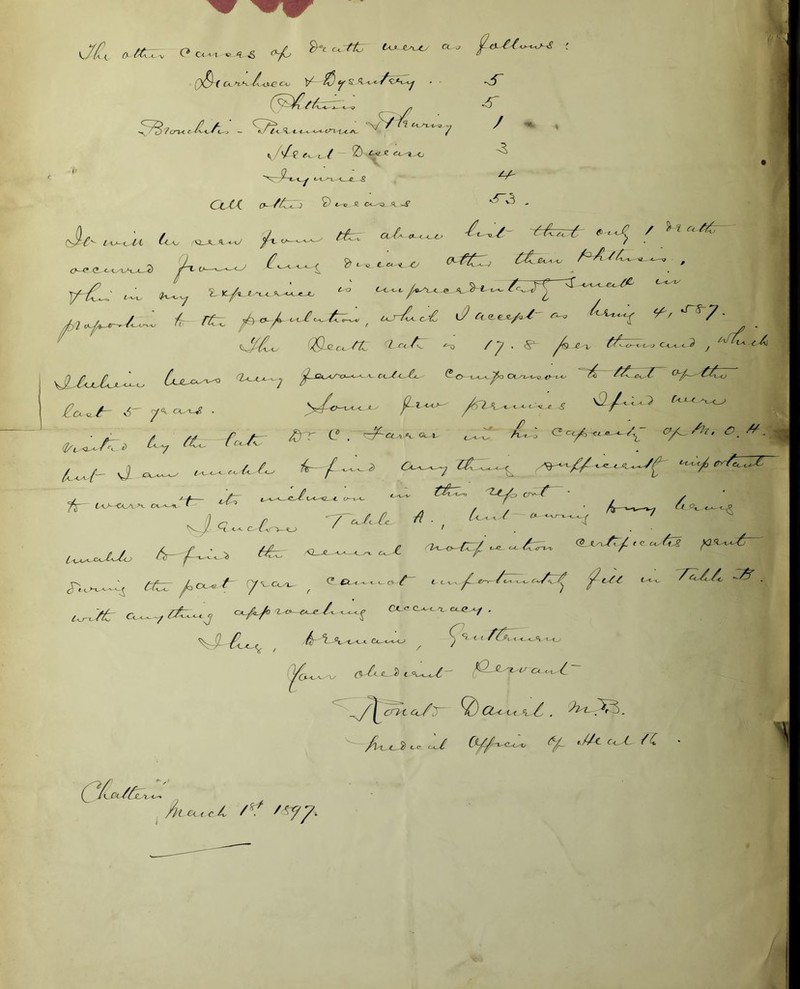 The other causes of Death were as follows :
Diarrhoea & Dysentery . 5
Phthisis 5
Bronchitis - Pneumonia & Pleurisy 1
Heart Disease 3
Injuries 4
All other Diseases 53 .
It will be seen from the above list that only 1 death
occurred from lung disease other than Phthisis ,
this in my experience is unprecedentedly small in
proportion to the population, which I accept as being 4, 587.
The Death rate is 17.8 per thousand, which
I believe bears very favourable comparison to that of the
last 5 years . Some few premises I find were
visited by the late Dr C. in his capacity of M. O. H.
but I am unable to find any thing sufficiently important
to warrant its inclusion in this report .
I enclose Table A . but owing to my being
unable to find the several notification Certificates sent
during the past year, cannot unfortunately fill in Table B .
with anything approaching accuracy .
I beg , to remain , Gentlemen
Your obedient Servant
Daniel . M.B.
Medical Officer of Health .
Chatteris
March 1st 1897.